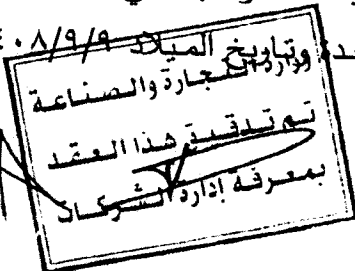 وتاريخ الميلاد ٤٠٨/٩/٩
وزارة التجارة والصناعة
تم تدقيق هذا العقد
بمعرفة إدارة الشركات